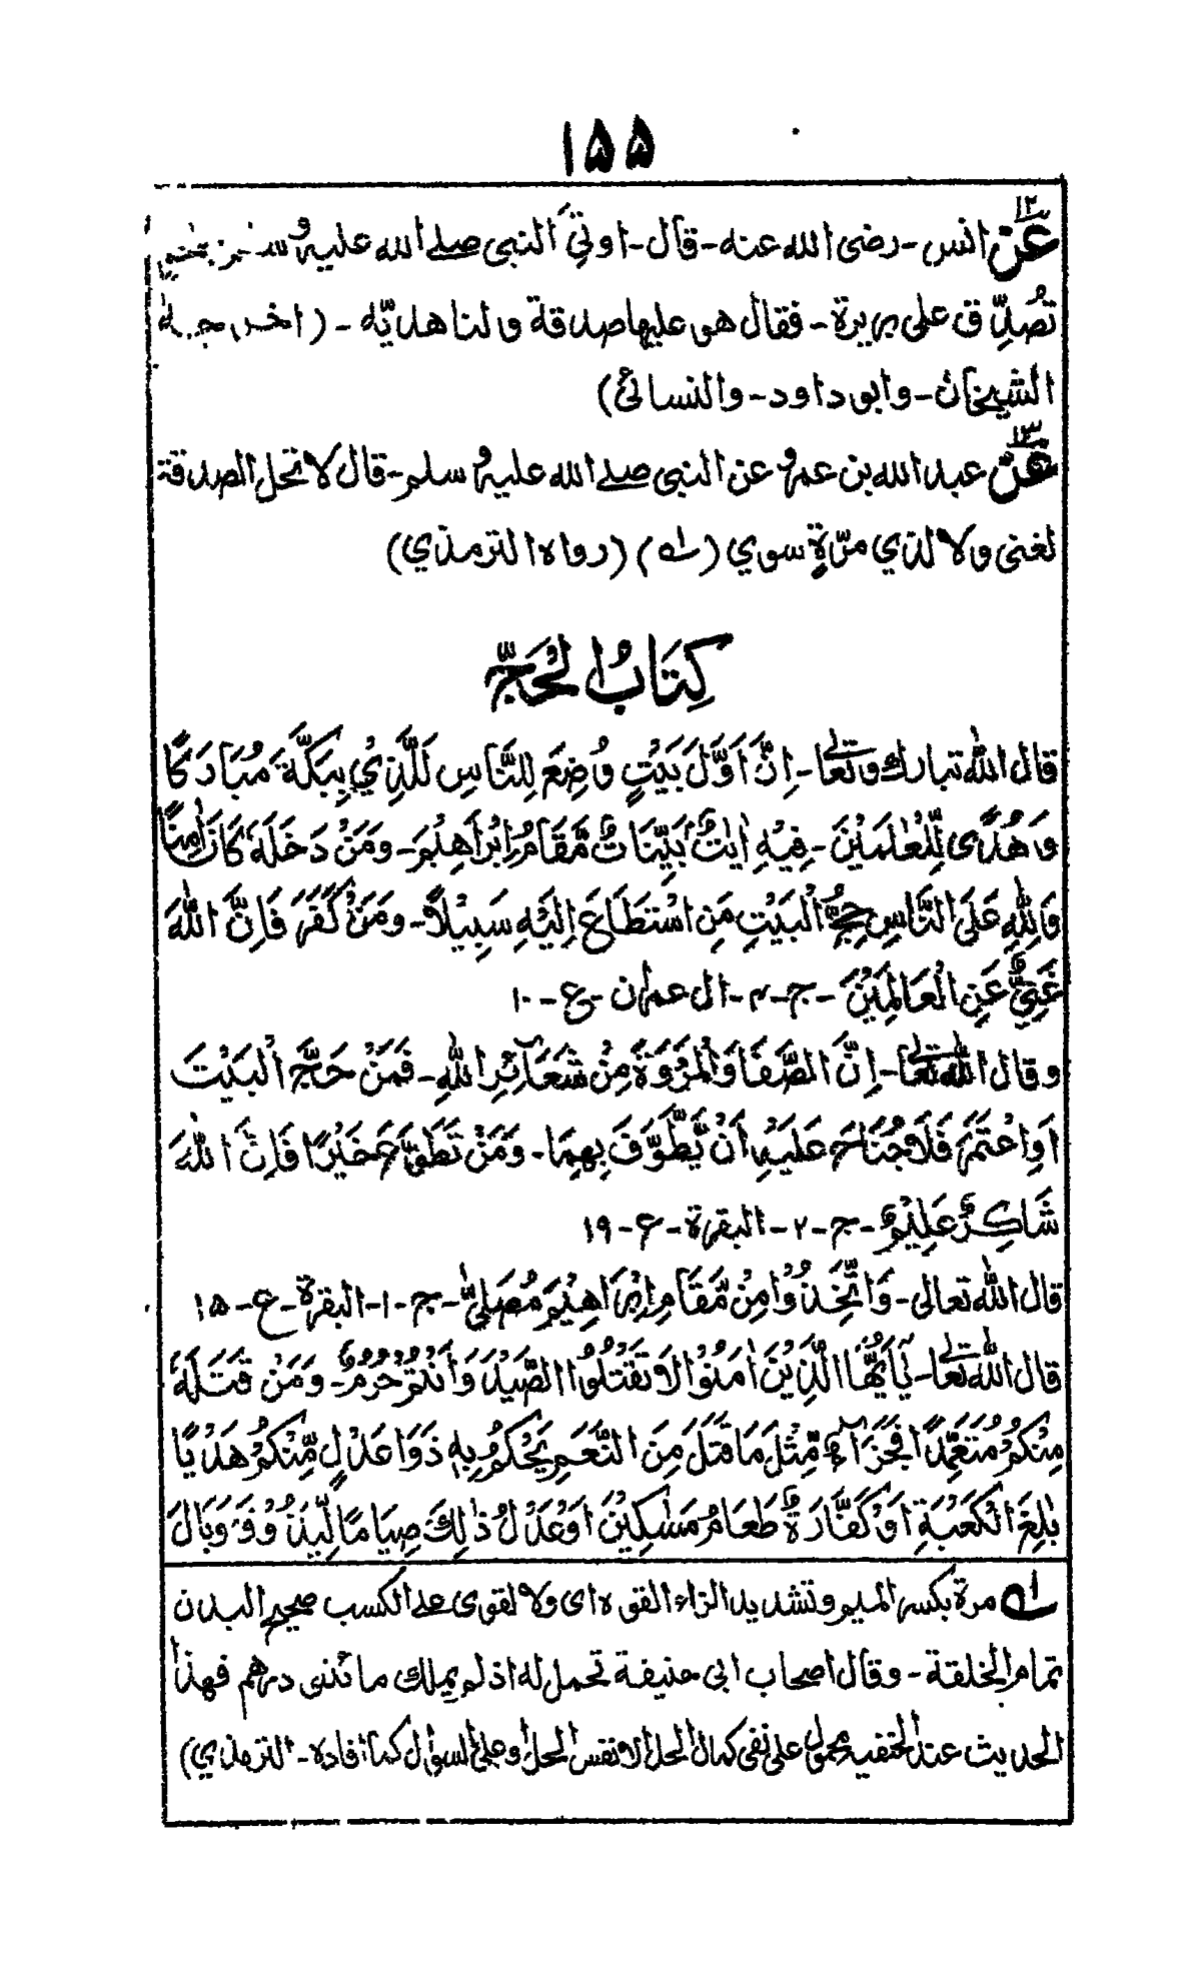 ١٥٥
١٢ عَنْ انس - رضى الله عنه - قال - اوتِيَ النبى صلے الله عليه و
تُصُدِّق على بريرة - فقال هى عليها صدقة ولنا هديّه - (اخرجه
الشيخان - وابو داود - والنسائى)
١٣ عَنْ عبد الله بن عمرو عن النبى صلے الله عليه و سلم - قال لا تحل الصدقة
لغنى ولا لذي مرّةٍ سوي (١ه) (رواه الترمذي)
كِتَابُ الْحَجِّ
قال الله تبارك وتعالى - اِنَّ اَوَّلَ بَيْتٍ وُضِعَ لِلنَّاسِ لَلَّذِيْ بِبَكَّةَ مُبَارَكًا
وَهُدًى لِّلْعٰلَمِيْنَ - فِيْهِ اٰيٰتٌ بَيِّنَاتٌ مَّقَامُ اِبْرَاهِيْمَ - وَمَنْ دَخَلَهٗ كَانَ اٰمِنًا
وَلِلّٰهِ عَلَى النَّاسِ حِجُّ الْبَيْتِ مَنِ اسْتَطَاعَ اِلَيْهِ سَبِيْلًا - وَمَنْ كَفَرَ فَاِنَّ اللّٰهَ
غَنِيٌّ عَنِ الْعَالَمِيْنَ - ج - ٤ - ال عمران - ع - ١٠
وقال الله تعالى - اِنَّ الصَّفَا وَالْمَرْوَةَ مِنْ شَعَآئِرِ اللّٰهِ - فَمَنْ حَجَّ الْبَيْتَ
اَوِ اعْتَمَرَ فَلَا جُنَاحَ عَلَيْهِ اَنْ يَّطَّوَّفَ بِهِمَا - وَمَنْ تَطَوَّعَ خَيْرًا فَاِنَّ اللّٰهَ
شَاكِرٌ عَلِيْمٌ - ج - ٢ - البقرة - ع - ١٩
قال الله تعالى - وَاتَّخِذُوْا مِنْ مَّقَامِ اِبْرَاهِيْمَ مُصَلًّى - ج - ١ - البقرة - ع - ١٥
قال الله تعالى - يٰۤاَيُّهَا الَّذِيْنَ اٰمَنُوْا لَا تَقْتُلُوا الصَّيْدَ وَاَنْتُمْ حُرُمٌ - وَمَنْ قَتَلَهٗ
مِنْكُمْ مُتَعَمِّدًا فَجَزَآءٌ مِّثْلُ مَا قَتَلَ مِنَ النَّعَمِ يَحْكُمُ بِهٖ ذَوَا عَدْلٍ مِّنْكُمْ هَدْيًا
بٰلِغَ الْكَعْبَةِ اَوْ كَفَّارَةٌ طَعَامُ مَسٰكِيْنَ اَوْ عَدْلُ ذٰلِكَ صِيَامًا لِّيَذُوْقَ وَبَالَ
١ه مرة بكسر الميم وتشديد الراء القوه اى ولا لقوى على الكسب صحيح البدن
تمام الخلقة - وقال اصحاب ابى حنيفة تحمل له اذ لم يملك مائتى درهم فهذا
الحديث عند الحنفيه محمول على نفى كمال الحل لا نفس الحل او على السؤال كما افاده - الترمذي)